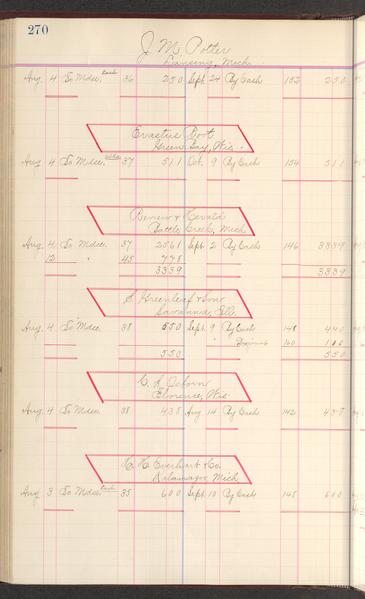 270
J. M. Potter
Lansing, Mich.
Aug. 4 To Mdse. 36 250 Sept. 24 By Cash 152 250
Erastus Root
Green Bay, Wis.
Aug 4 To Mdse. 37 511 Oct. 9 By Cash 154 511
Battle Creek, Mich
Aug. 4 To Mdse. 37 2561 Sept. 2 By Cash 146 3339
12 " 45 778
3339 3339
S. Greenleaf & Son
Savanna, Ill.
Aug. 4 To Mdse. 38 550 Sept. 9 By Cash 148
" 160
550 550
C. L. Osborn
Florence, Wis.
Aug. 4 To Mdse. 38 438 Aug 14 By Cash 142 438
C. H. Everhart & Co.
Kalamazoo, Mich
Aug 3 To Mdse. 35 600 Sept. 10 By Cash 145 600